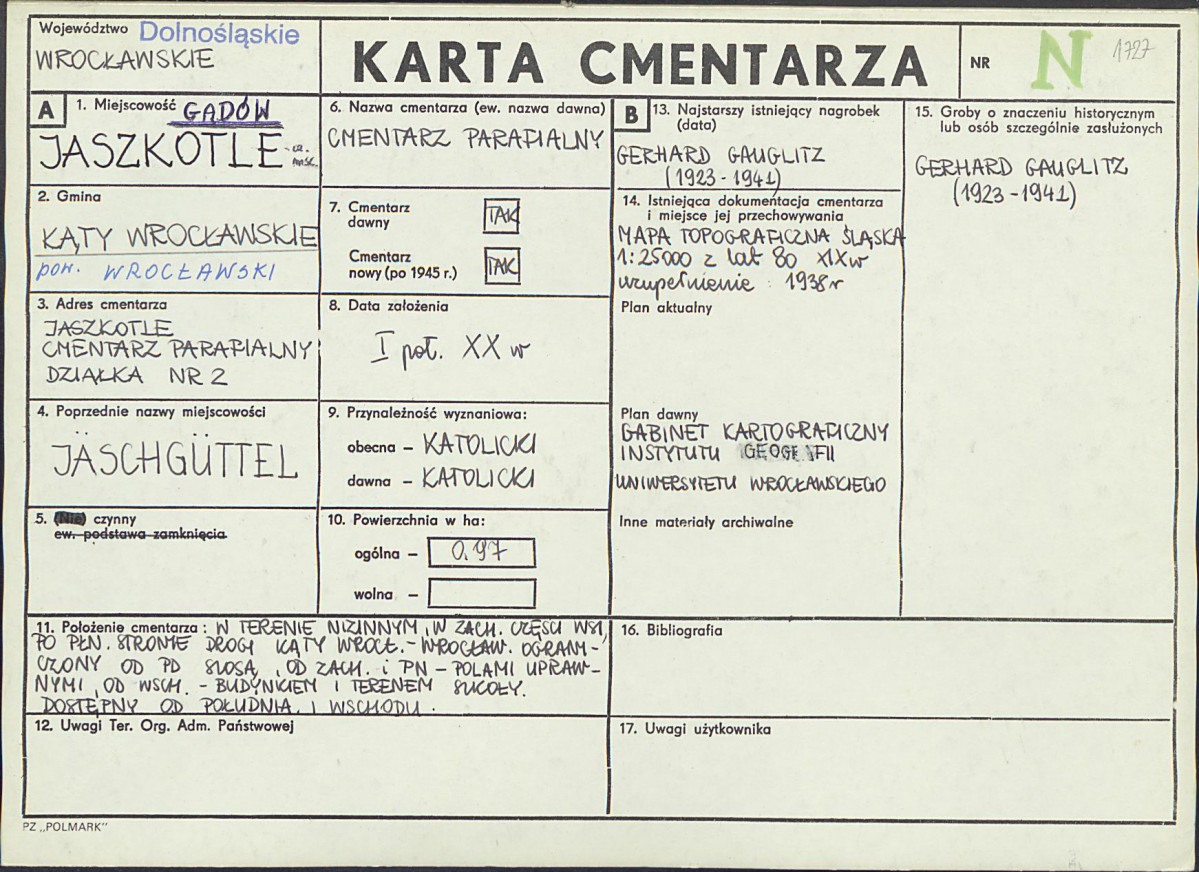 Województwo Dolnośląskie
WROCŁAWSKIE
KARTA CMENTARZA
NR
N 1727
A
1. Miejscowość GĄDÓW
JASZKOTLE
2. Gmina
KĄTY WROCŁAWSKIE
pow. WROCŁAWSKI
3. Adres cmentarza
JASZKOTLE
CMENTARZ PARAFIALNY
DZIAŁKA NR 2
4. Poprzednie nazwy miejscowości
JÄSCHGÜTTEL
5. (Nie) czynny
ew. podstawa zamknięcia
6. Nazwa cmentarza (ew. nazwa dawna)
CMENTARZ PARAFIALNY
7. Cmentarz
dawny TAK
Cmentarz
nowy (po 1945 r.) TAK
8. Data założenia
I poł. XX w
9. Przynależność wyznaniowa:
obecna – KATOLICKI
dawna – KATOLICKI
10. Powierzchnia w ha:
ogólna – 0.97
wolna –
11. Położenie cmentarza: W TERENIE NIZINNYM, W ZACH. CZĘŚCI WSI,
PO PŁN. STRONIE DROGI KĄTY WROCŁ. – WROCŁAW. OGRANI-
CZONY OD PD SZOSĄ, OD ZACH. i PN – POLAMI UPRAW-
NYMI, OD WSCH. – BUDYNKIEM I TERENEM SZKOŁY.
DOSTĘPNY OD POŁUDNIA I WSCHODU.
12. Uwagi Ter. Org. Adm. Państwowej
B
13. Najstarszy istniejący nagrobek
(data)
GERHARD GAUGLITZ
(1923 - 1941)
14. Istniejąca dokumentacja cmentarza
i miejsce jej przechowywania
MAPA TOPOGRAFICZNA ŚLĄSKA
1:25000 z lat 80 XIX w
uzupełnienie : 1938 r
Plan aktualny
Plan dawny
GABINET KARTOGRAFICZNY
INSTYTUTU
UNIWERSYTETU WROCŁAWSKIEGO
Inne materiały archiwalne
15. Groby o znaczeniu historycznym
lub osób szczególnie zasłużonych
GERHARD GAUGLITZ
(1923 - 1941)
16. Bibliografia
17. Uwagi użytkownika
PZ „POLMARK"